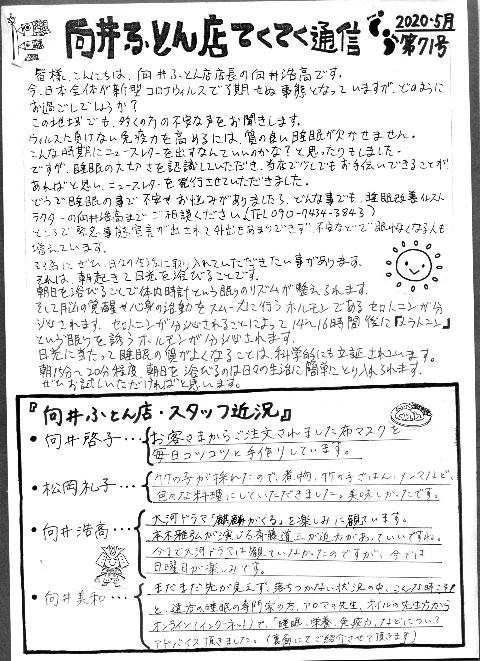 向井ふとん店てくてく通信
2020・5月
第71号
皆様、こんにちは、向井ふとん店店長の向井浩高です。
今、日本全体が新型コロナウィルスで予期せぬ事態となっていますが、どのように
お過ごしでしょうか?
この地域でも、多くの方の不安な声をお聞きします。
ウィルスに負けない免疫力を高めるには、質の良い睡眠が欠かせません。
こんな時期にニュースレターを出すなんていいのかな?と思ったりもしました。
ですが、睡眠の大切さを認識していただき、当店で少しでもお手伝いできることが
あればと思い、ニュースレターを発行させていただきました。
どうぞ睡眠の事で不安やお悩みがありましたら、どんな事でも、睡眠改善インスト
ラクターの向井浩高までご相談ください(TEL090-7434-3843)
ところで緊急事態宣言が出されて外出もあまりできず、不安などで眠れなくなる人も
増えています。
そこで、ぜひ日々の生活に取り入れていただきたい事があります。
それは、朝起きて日光を浴びることです。
朝日を浴びることで体内時計という眠りのリズムが整えられます。
そして月脳の覚醒や心身の活動をスムーズに行うホルモンであるセロトニンが分
泌されます。セロトニンが分泌されることによって14〜16時間後に『メラトニン』
という眠りを誘うホルモンが分泌されます。
日光に当たって睡眠の質がよくなることは、科学的にも立証されています。
朝15分〜20分程度、朝日を浴びるのは日々の生活に簡単にとり入れられます。
ぜひお試しいただければと思います。
『向井ふとん店・スタッフ近況』
・向井啓子・・・お客さまからご注文されました布マスクを
毎日コツコツと手作りしています。
・松岡礼子・・・タケの子が採れたので、煮物、タケの子ごはん、メンマなど、
色々な料理にしていただきました。美味しかったです。
・向井浩高・・・大河ドラマ「麒麟がくる」を楽しみに観ています。
本木雅弘が演じる斉藤道三が迫力があっていいですね。
今まで大河ドラマは観ていなかったのですが、今では
日曜日が楽しみです。
・向井美和・・・まだまだ先が見えず、落ちつかない状況の中、こんな時こそ!
と、遠方の睡眠の専門家の方、アロマの先生、オイルの先生方から
オンライン(インターネット)で、「睡眠、栄養、免疫力」などについて
アドバイス頂きました。(裏面にてご紹介させて頂きます)